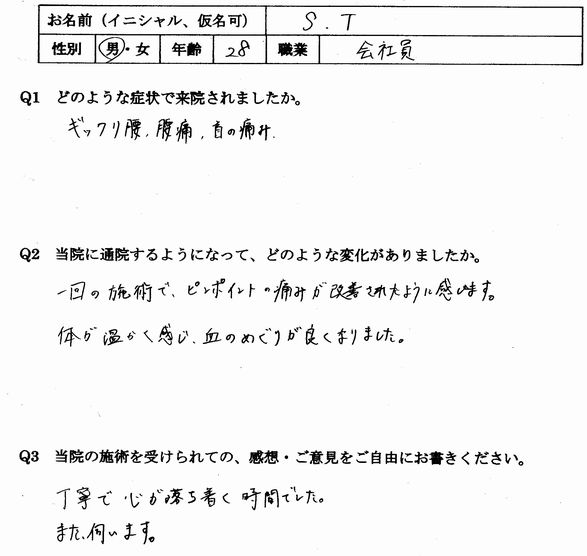 お名前（イニシャル、仮名可） S.T
性別 男・女 年齢 28 職業 会社員
Q1 どのような症状で来院されましたか。
ギックリ腰、腰痛、首の痛み.
Q2 当院に通院するようになって、どのような変化がありましたか。
一回の施術で、ピンポイントの痛みが改善されたように感じます。
体が温かく感じ、血のめぐりが良くなりました。
Q3 当院の施術を受けられての、感想・ご意見をご自由にお書きください。
丁寧で心が落ち着く時間でした。
また、伺います。